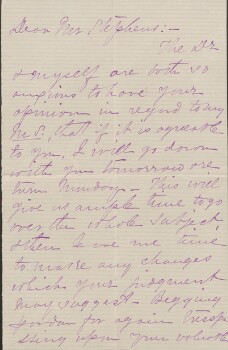 Dear Mrs Stephens:-
The Dr
& myself are both so
anxious to have your
opinion in regard to my
that if it is agreeable
to you, I will go down
with you tomorrow
turn Monday - This will
give us ample time to go
over the whole subject,
& then leave me time
to make any changes
which your judgment
may suggest. Begging
pardon for again
upon your valuable